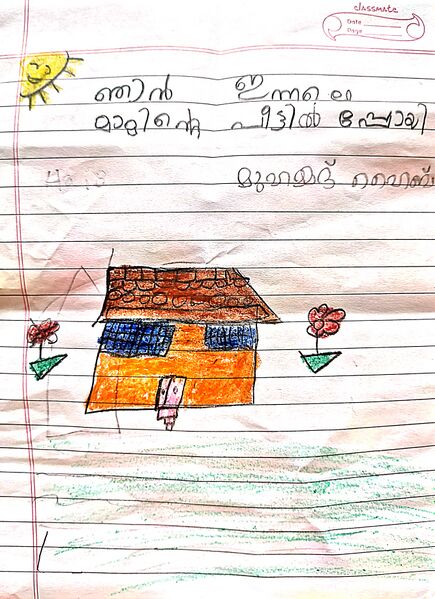 classmate
Date
Page
ഞിൻ ഇന്നലെ
മാമിൻ്റെ വീട്ടിൽ പ്പോയി
മുഹമ്മദ്